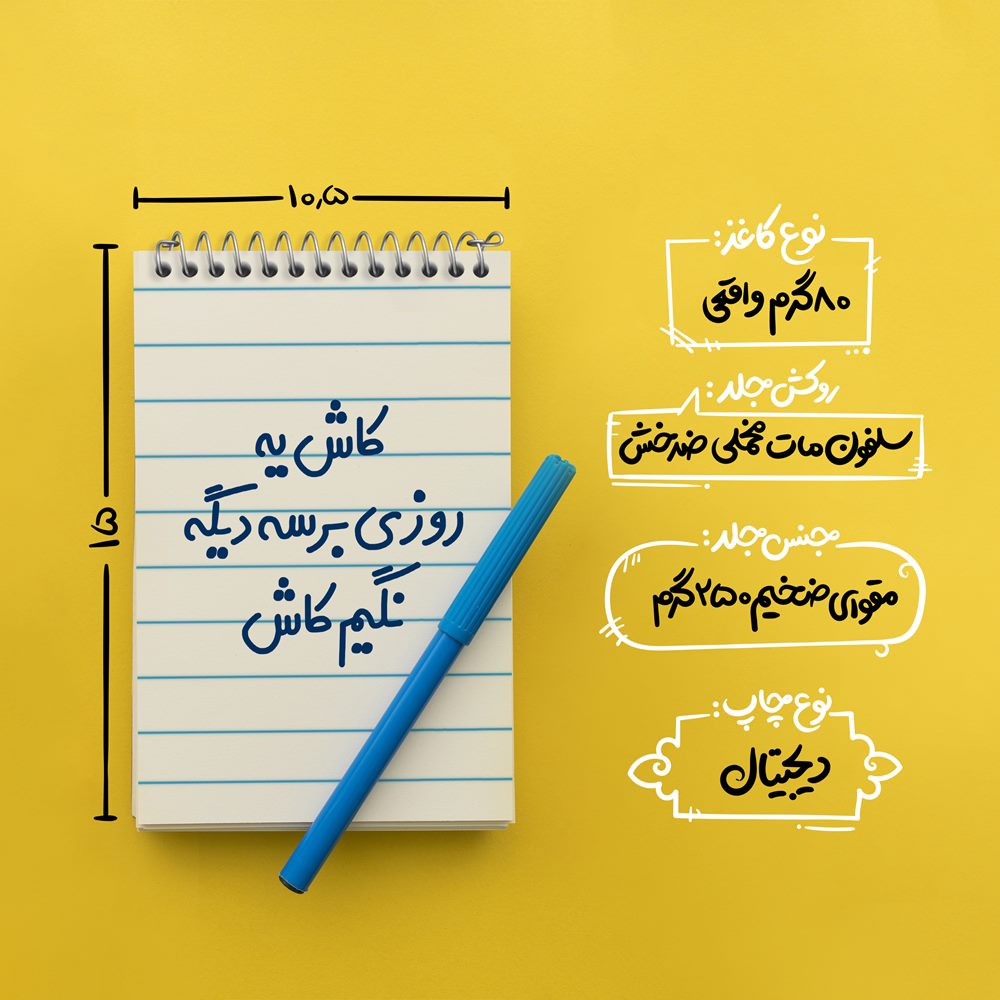 ۱۰٫۵
۱۵
کاش یه
روزی برسه دیگه
نگیم کاش
نوع کاغذ:
۸۰گرم واقعی
روکش جلد:
سلفون مات مخملی ضدخش
جنس جلد:
مقوای ضخیم ۲۵۰گرم
نوع چاپ:
دیجیتال